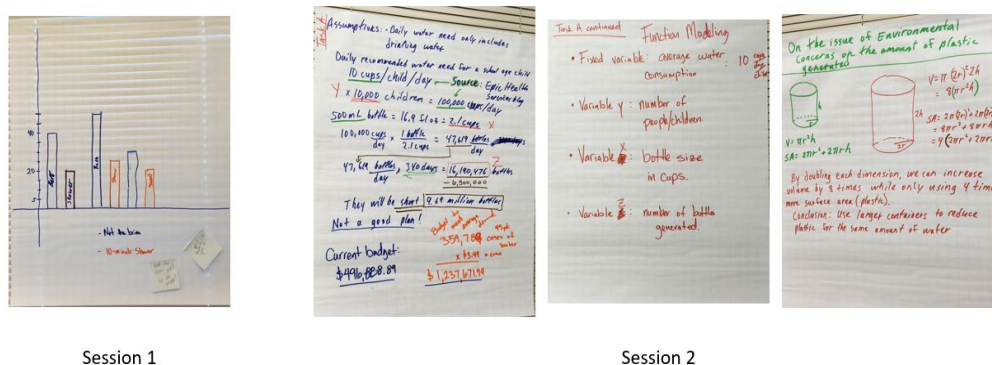 40
20
Shower
- Not the brim
- 10-minute Shower
Session 1
Task A
Assumptions: - Daily water need only includes
drinking water
Daily recommended water need for a school age child
10 cups/child/day
Source: Epic Health
Services blog
Y x 10,000 children = 100,000 cups/day
500mL bottle = 16.9 fl oz = 2.1 cups X
100,000 cups/day x 1 bottle/2.1 cups = 47,619 bottles/day
47,619 bottles/day x 340 days = 16,190,476 bottles
Z
- 6,500,000
They will be short 9.69 million bottles
Not a good plan!
Budget to meet average demand
359,788
cases of water
x $3.44
$1,237,671.94
Current budget:
$496,888.89
Task A continued
Function Modeling
• Fixed variable: average water consumption : 10 cups
day
• Variable y: number of
people/children.
• Variable X: bottle size
in cups.
• Variable Z: number of bottles
generated.
On the issue of Environmental
Concerns of the amount of plastic
generated
h
V = πr²h
SA = 2πr² + 2πrh
2h
2r
V = π(2r)² 2h
= 8(πr²h)
SA = 2π(2r)² + 2π(2r
= 8πr² + 8πrh
= 4(2πr² + 2πr
By doubling each dimension, we can increase
volume by 8 times while only using 4 times
more surface area (plastic).
Conclusion: Use larger containers to reduce
plastic for the same amount of water
Session 2